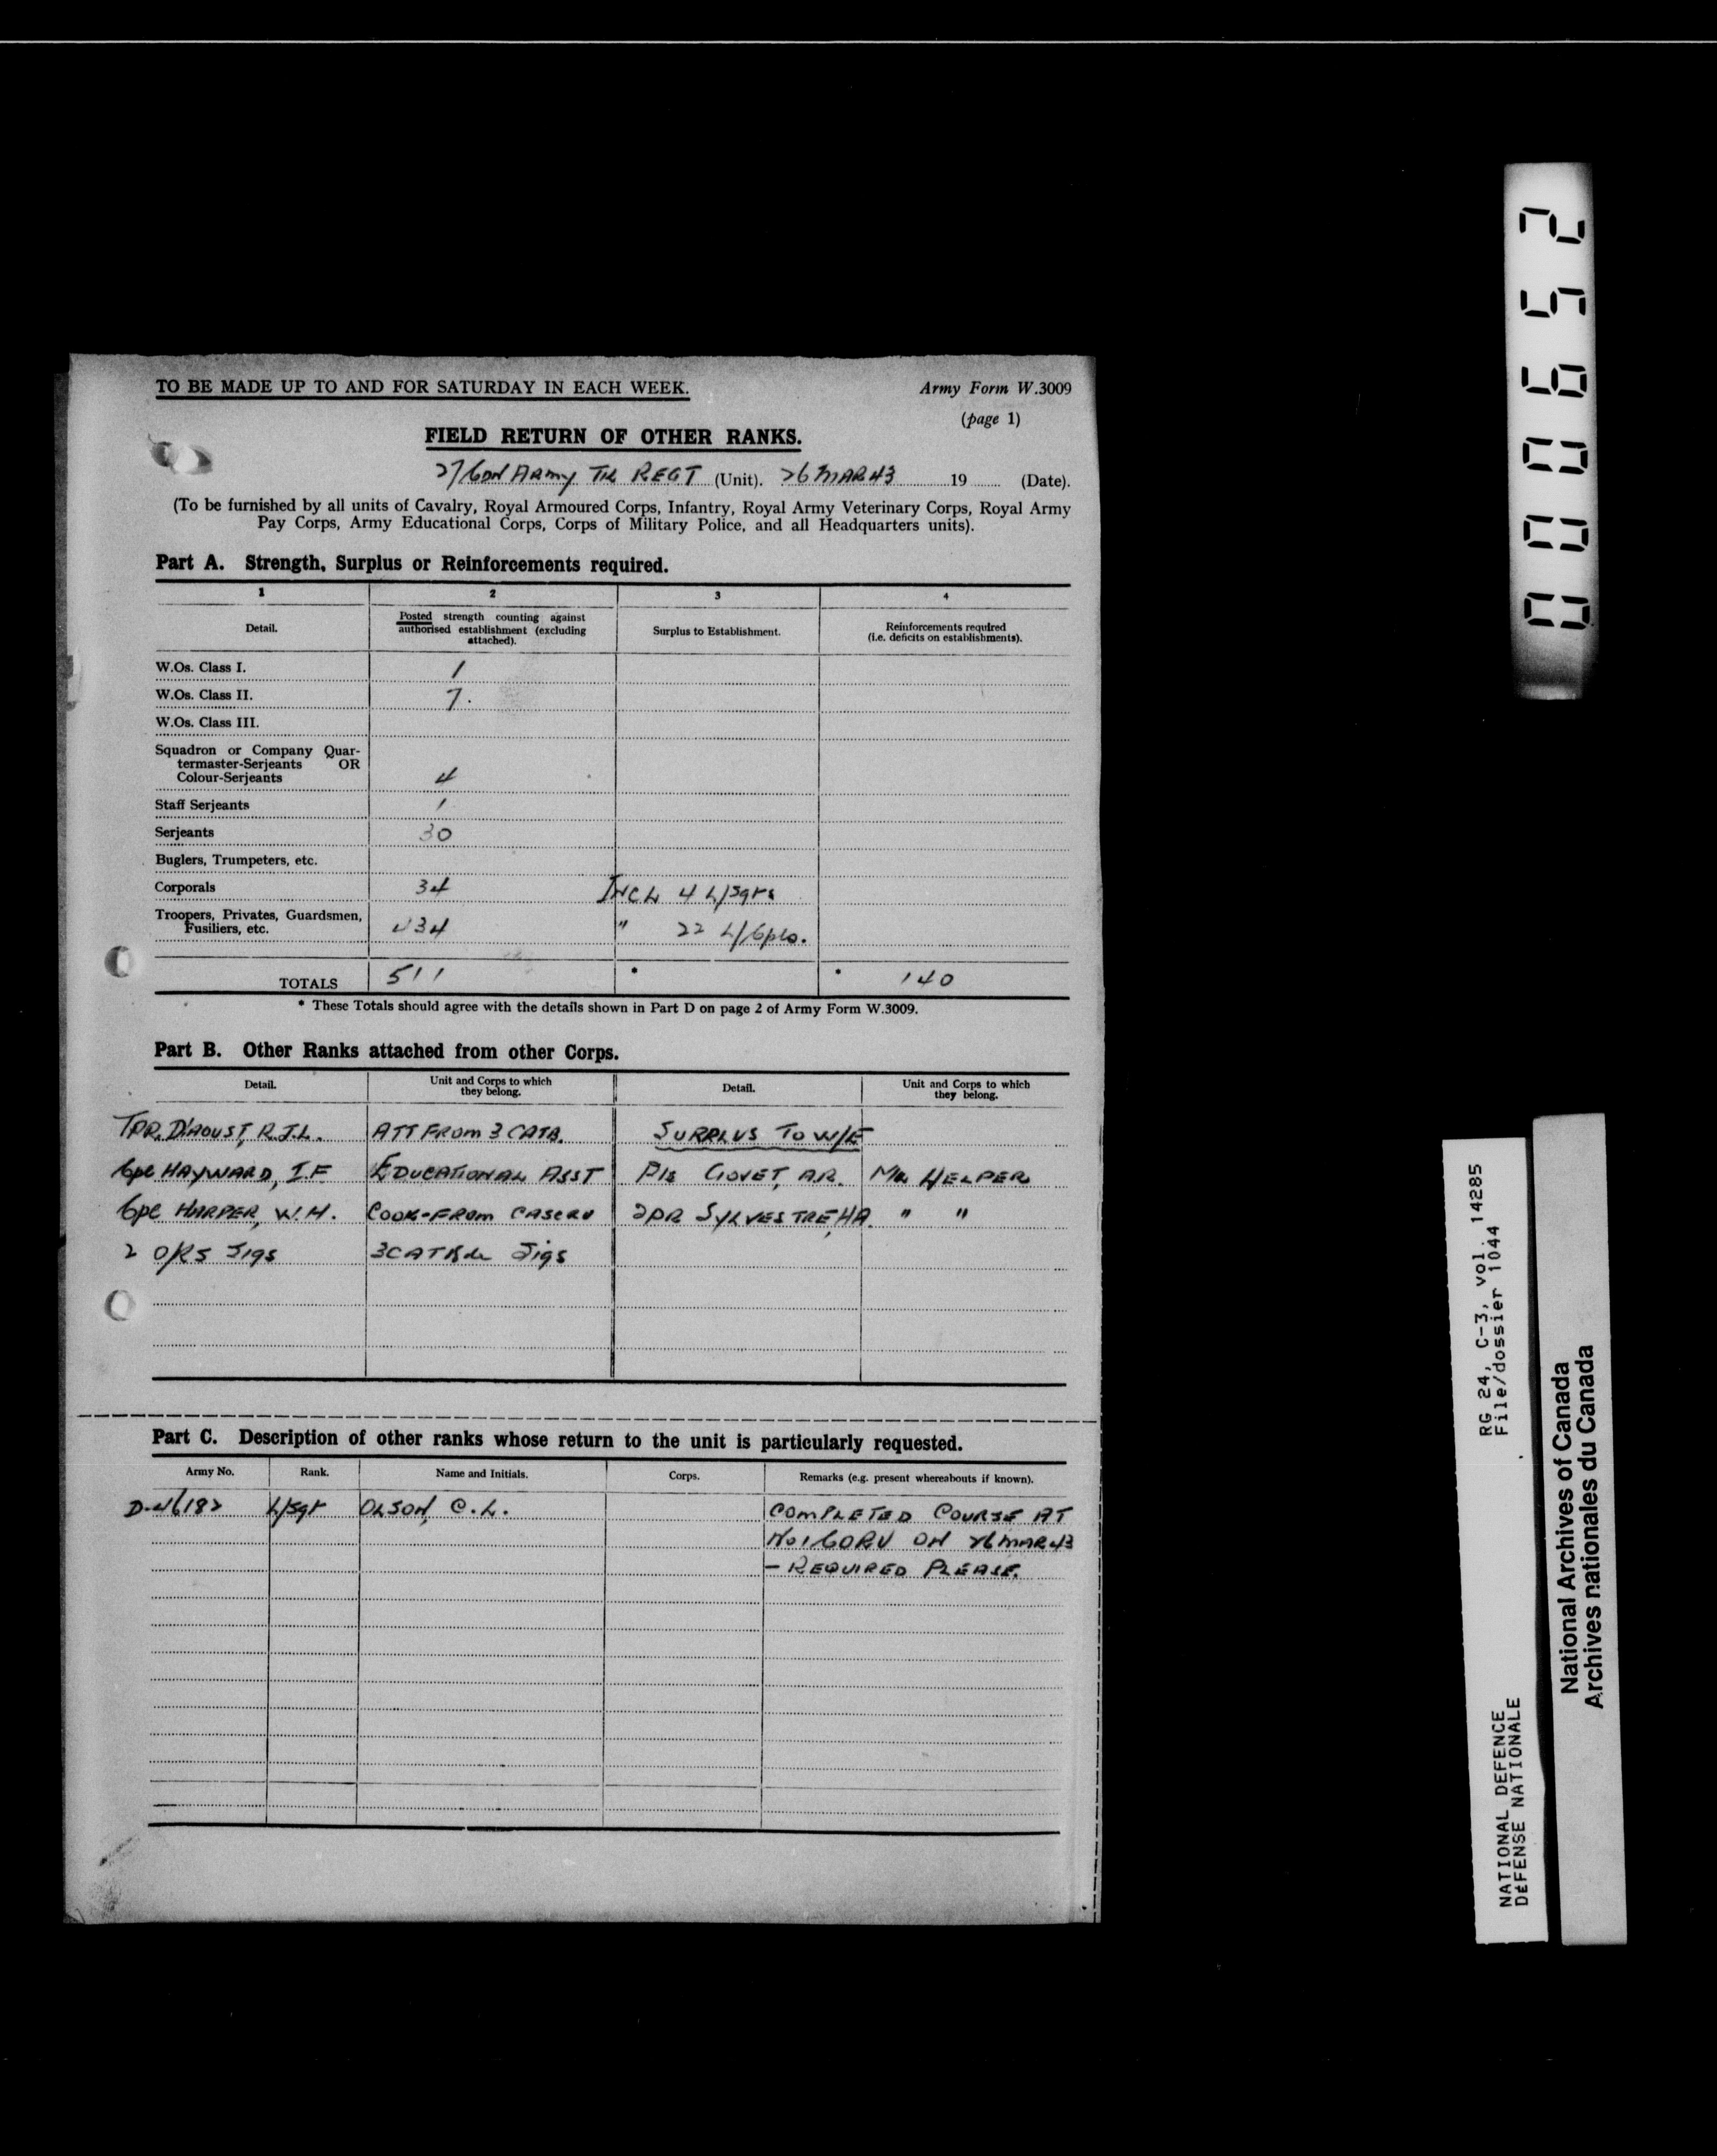 TO BE MADE UP TO AND FOR SATURDAY IN EACH WEEK.
Army Form W.3009
(page 1)
FIELD RETURN OF OTHER RANKS.
27 CDN ARMY TK REGT (Unit). 26 MAR 43 19 (Date).
(To be furnished by all units of Cavalry, Royal Armoured Corps, Infantry, Royal Army Veterinary Corps, Royal Army
Pay Corps, Army Educational Corps, Corps of Military Police, and all Headquarters units).
Part A. Strength, Surplus or Reinforcements required.
1 2 3 4
Detail.
Posted strength counting against
authorised establishment (excluding
attached).
Surplus to Establishment.
Reinforcements required
(i.e. deficits on establishments).
W.Os. Class I. 1
W.Os. Class II. 7.
W.Os. Class III.
Squadron or Company Quar-
termaster-Serjeants OR
Colour-Serjeants 4
Staff Serjeants 1
Serjeants 30
Buglers, Trumpeters, etc.
Corporals 34 INCL 4 L/Sgts
Troopers, Privates, Guardsmen,
Fusiliers, etc. 434 " 22 L/Cpls.
TOTALS 511 * * 140
* These Totals should agree with the details shown in Part D on page 2 of Army Form W.3009.
Part B. Other Ranks attached from other Corps.
Detail.
Unit and Corps to which
they belong.
Detail.
Unit and Corps to which
they belong.
TPR. D'AOUST, R.J.L. ATT FROM 3 CATB. SURPLUS TO W/E
Cpl HAYWARD, I.F EDUCATIONAL ASST GOVET, A.R. HELPER
Cpl HARPER, W.H. COOK-FROM CASCRU TPR SYLVESTRE, HA. " "
2 O/RS Sigs 3 CATBde Sigs
Part C. Description of other ranks whose return to the unit is particularly requested.
Army No. Rank. Name and Initials. Corps. Remarks (e.g. present whereabouts if known).
D-46182 L/Sgt OLSON, C.L. COMPLETED COURSE AT
No 1 CORU ON 26 MAR 43
- REQUIRED PLEASE.
000652
RG 24, C-3, vol. 14285
File/dossier 1044
NATIONAL DEFENCE
DÉFENSE NATIONALE
National Archives of Canada
Archives nationales du Canada